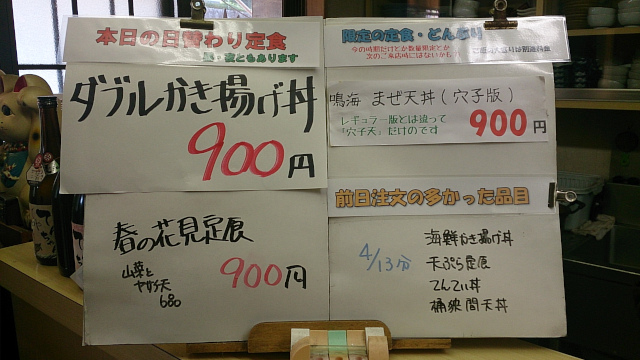 本日の日替わり定食
昼・夜ともあります
ダブルかき揚げ丼
900円
春の花見定食
山菜と
ヤサイ天
680
900円
限定の定食・どんぶり
今の時期だけとか数量限定とか
次のご来店時にはないかも!
鳴海 まぜ天丼(穴子版)
レギュラー版とは違って
「穴子天」だけのです
900円
前日注文の多かった品目
4/13分
海鮮かき揚げ丼
天ぷら定食
てんてい丼
桶狭間天丼